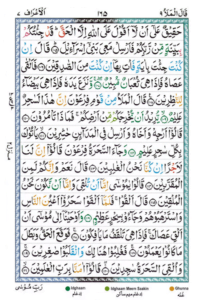 قَالَ الْمَلَاُ ٩ ١٦٥ الْاَعْرَاف ٧
حَقِيْقٌ عَلٰٓى اَنْ لَّاۤ اَقُوْلَ عَلَى اللّٰهِ اِلَّا الْحَقَّ ؕ قَدْ جِئْتُكُمْ
بِبَيِّنَةٍ مِّنْ رَّبِّكُمْ فَاَرْسِلْ مَعِيَ بَنِيْۤ اِسْرَآءِيْلَ ۝ قَالَ اِنْ
كُنْتَ جِئْتَ بِاٰيَةٍ فَاْتِ بِهَاۤ اِنْ كُنْتَ مِنَ الصّٰدِقِيْنَ ۝ فَاَلْقٰى
عَصَاهُ فَاِذَا هِيَ ثُعْبَانٌ مُّبِيْنٌ ۝ وَّنَزَعَ يَدَهٗ فَاِذَا هِيَ بَيْضَآءُ
لِلنّٰظِرِيْنَ ۝ قَالَ الْمَلَاُ مِنْ قَوْمِ فِرْعَوْنَ اِنَّ هٰذَا لَسٰحِرٌ
عَلِيْمٌ ۝ يُّرِيْدُ اَنْ يُّخْرِجَكُمْ مِّنْ اَرْضِكُمْ ۚ فَمَاذَا تَاْمُرُوْنَ ۝
قَالُوْۤا اَرْجِهْ وَاَخَاهُ وَاَرْسِلْ فِي الْمَدَآئِنِ حٰشِرِيْنَ ۝ يَاْتُوْكَ
بِكُلِّ سٰحِرٍ عَلِيْمٍ ۝ وَجَآءَ السَّحَرَةُ فِرْعَوْنَ قَالُوْۤا اِنَّ لَنَا
لَاَجْرًا اِنْ كُنَّا نَحْنُ الْغٰلِبِيْنَ ۝ قَالَ نَعَمْ وَاِنَّكُمْ لَمِنَ
الْمُقَرَّبِيْنَ ۝ قَالُوْا يٰمُوْسٰۤى اِمَّاۤ اَنْ تُلْقِيَ وَاِمَّاۤ اَنْ نَّكُوْنَ نَحْنُ
الْمُلْقِيْنَ ۝ قَالَ اَلْقُوْا ۚ فَلَمَّاۤ اَلْقَوْا سَحَرُوْۤا اَعْيُنَ النَّاسِ
وَاسْتَرْهَبُوْهُمْ وَجَآءُوْ بِسِحْرٍ عَظِيْمٍ ۝ وَاَوْحَيْنَاۤ اِلٰى مُوْسٰۤى اَنْ
اَلْقِ عَصَاكَ ۚ فَاِذَا هِيَ تَلْقَفُ مَا يَاْفِكُوْنَ ۝ فَوَقَعَ الْحَقُّ وَبَطَلَ
مَا كَانُوْا يَعْمَلُوْنَ ۝ فَغُلِبُوْا هُنَالِكَ وَانْقَلَبُوْا صٰغِرِيْنَ ۝
وَاُلْقِيَ السَّحَرَةُ سٰجِدِيْنَ ۝ قَالُوْۤا اٰمَنَّا بِرَبِّ الْعٰلَمِيْنَ ۝
Idghaam Idgham Meem Saakin Ghunna